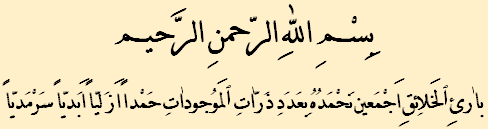 بِسْمِ اللهِ الرَّحمنِ الرَّحيمِ
بارئِ الخَلائِقِ اَجْمَعينَ نَحْمَدُهُ بِعَدَدِ ذَرّاتِ المَوجُوداتِ حَمْداً اَزَلِيّاً اَبَدِيّاً سَرْمَدِيّاً